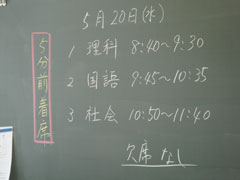 5月20日(水)
5分前着席
1 理科 8:40~9:30
2 国語 9:45~10:35
3 社会 10:50~11:40
欠席 なし